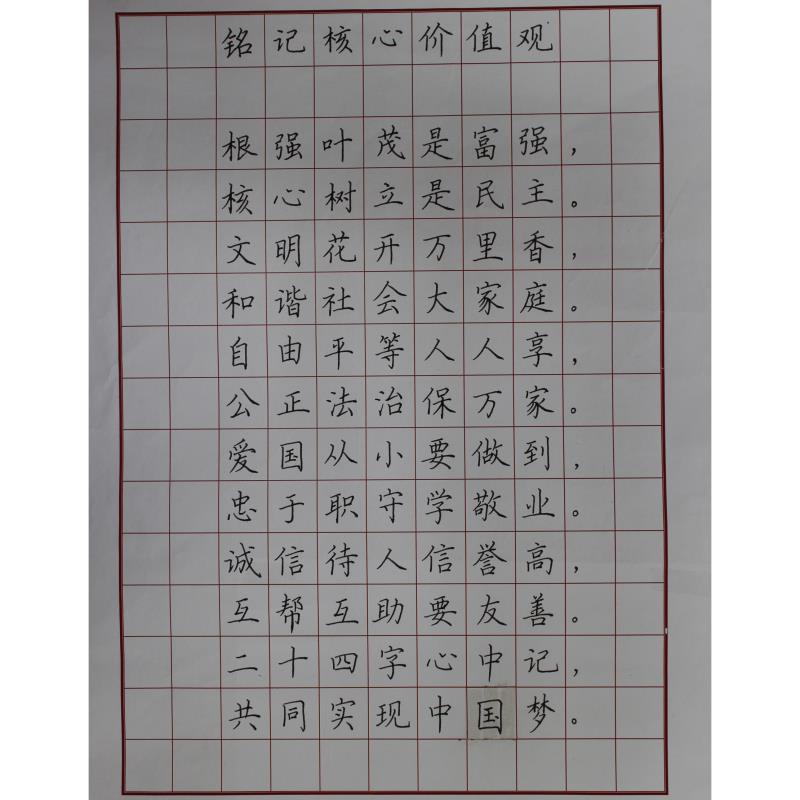 铭记核心价值观
根强叶茂是富强，
核心树立是民主。
文明花开万里香，
和谐社会大家庭。
自由平等人人享，
公正法治保万家。
爱国从小要做到，
忠于职守学敬业。
诚信待人信誉高，
互帮互助要友善。
二十四字心中记，
共同实现中国梦。